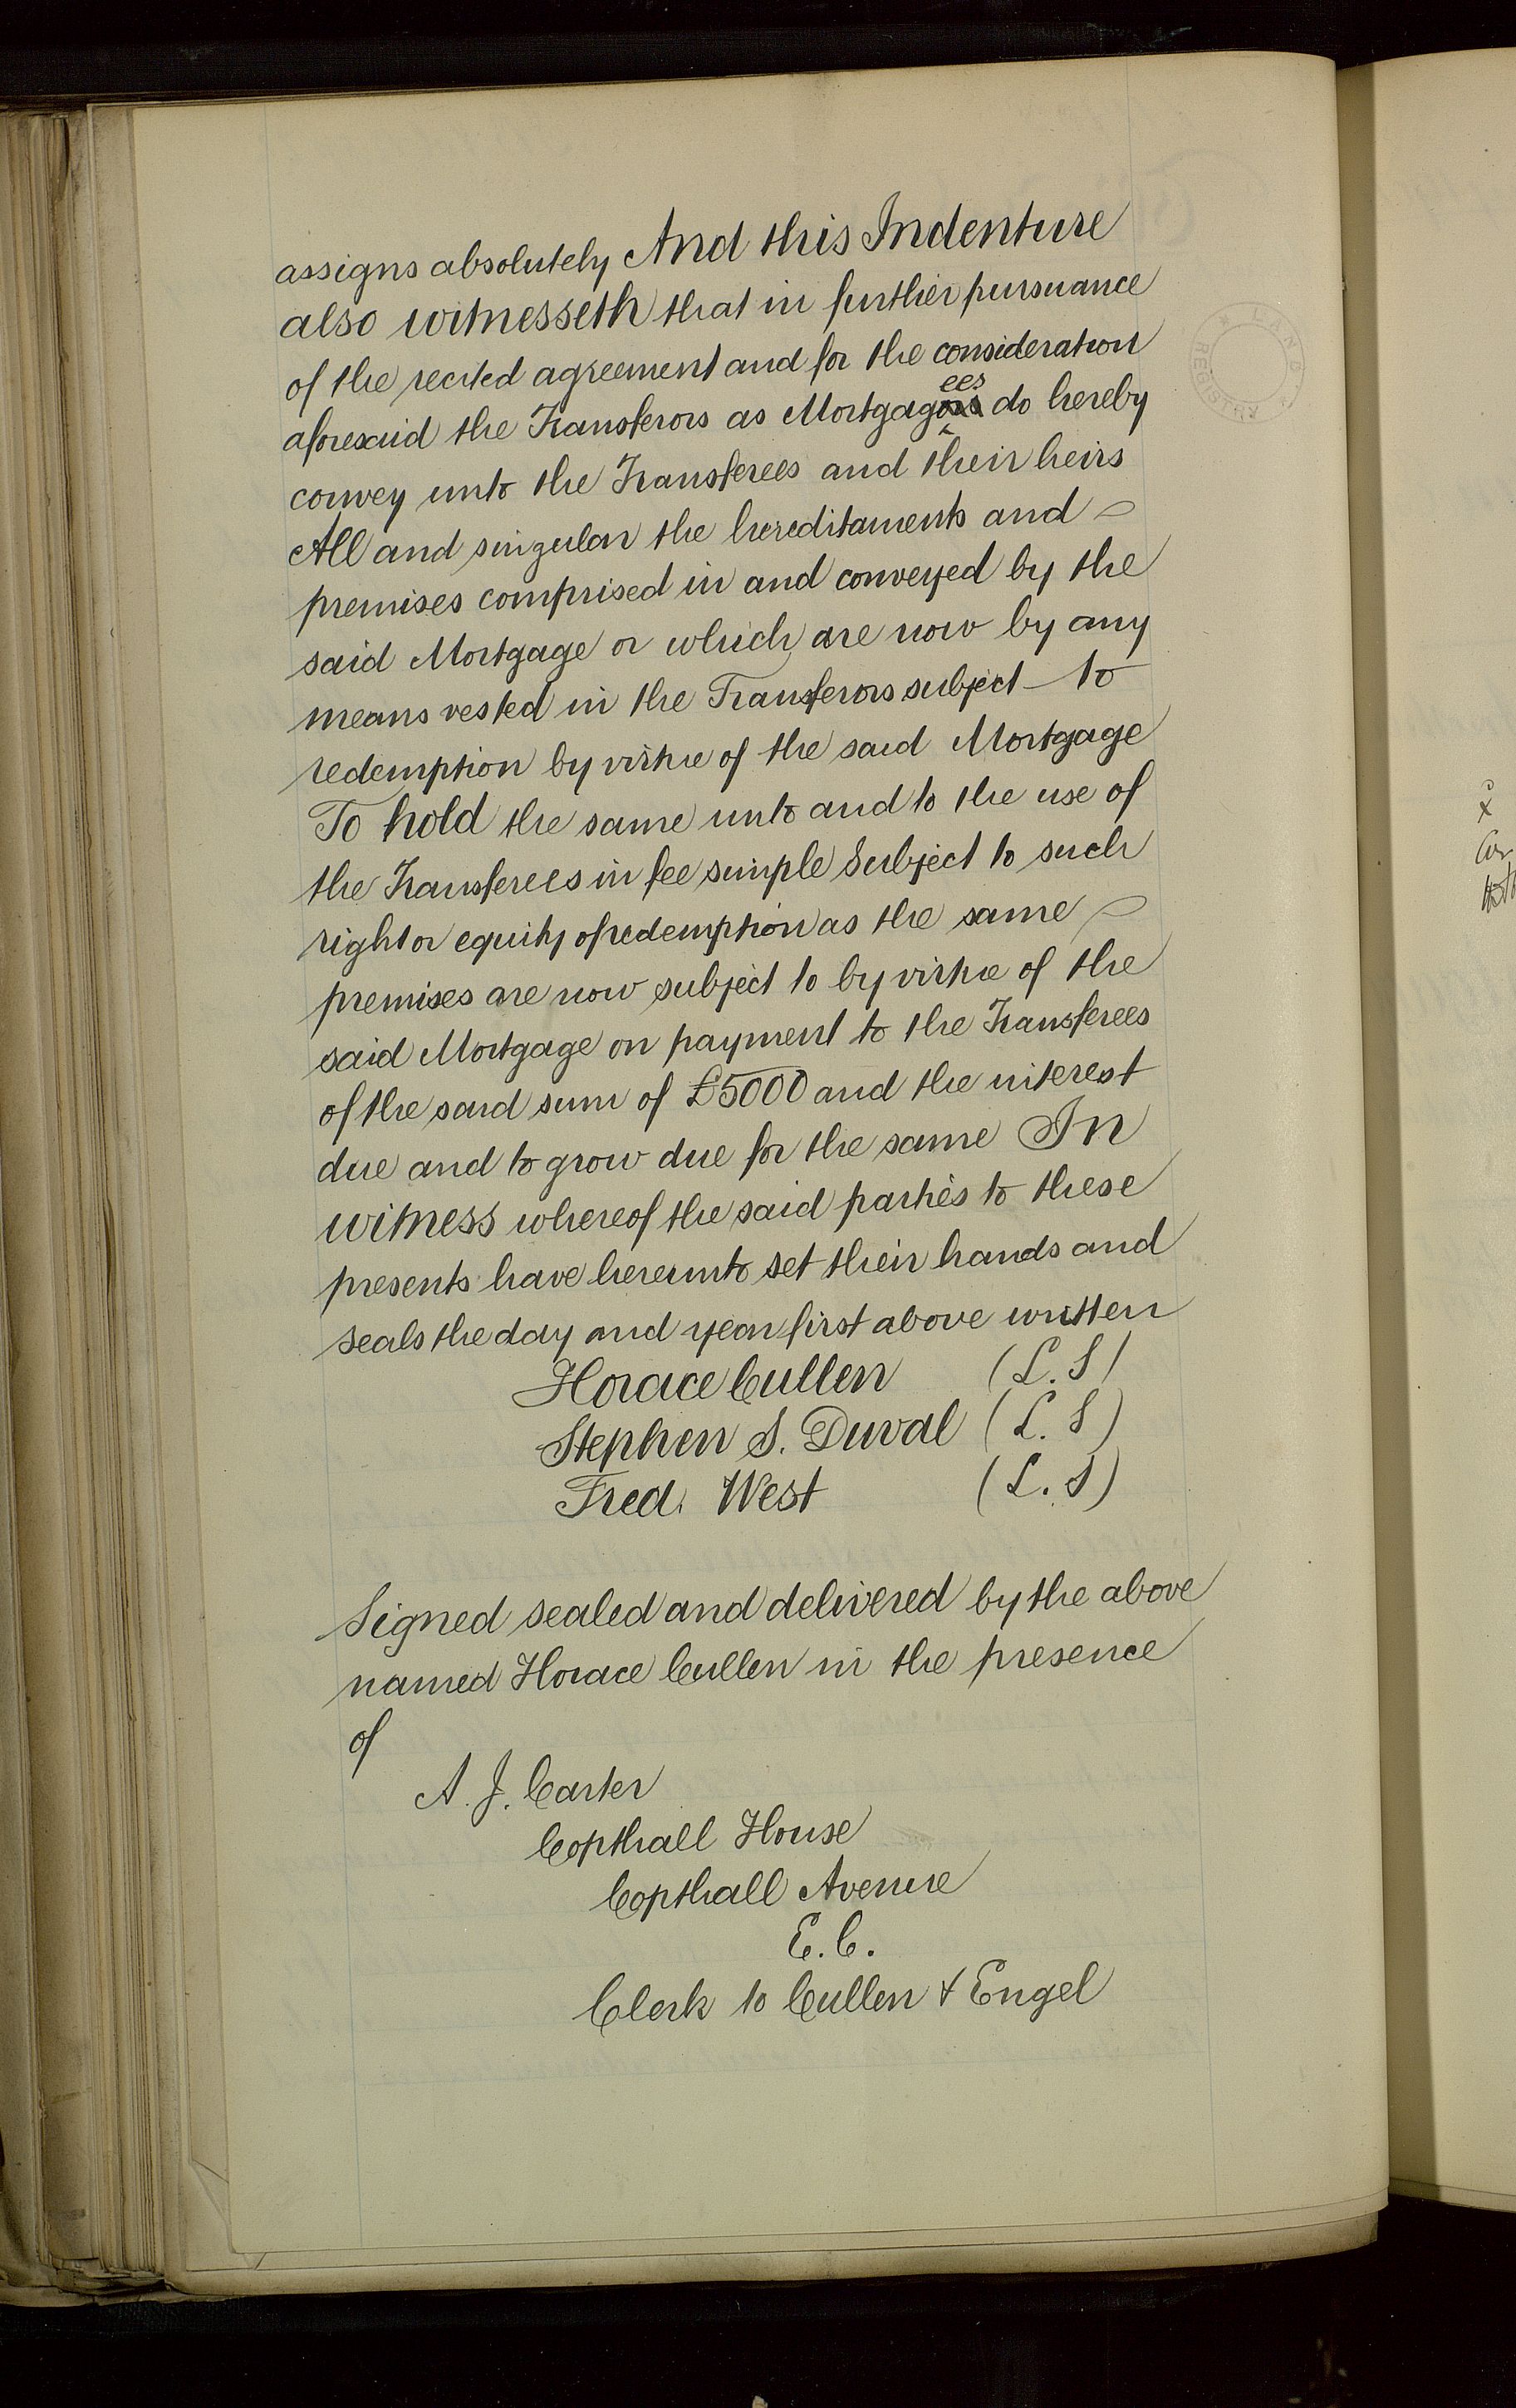 assigns absolutely And this Indenture
also witnesseth that in further pursuance
of the recited agreement and for the consideration
aforesaid the Transferors as Mortgagors ees do hereby
convey unto the Transferees and their heirs
All and singular the hereditaments and
premises comprised in and conveyed by the
said Mortgage or which are now by any
means vested in the Transferors subject to
redemption by virtue of the said Mortgage
To hold the same unto and to the use of
the Transferees in fee simple Subject to such
right or equity of redemption as the same
premises are now subject to by virtue of the
said Mortgage on payment to the Transferees
of the said sum of £5000 and the interest
due and to grow due for the same In
witness whereof the said parties to these
presents have hereunto set their hands and
seals the day and year first above written
Horace Cullen (L.S)
Stephen S. Duval (L.S)
Fred. West (L.S)
Signed sealed and delivered by the above
named Horace Cullen in the presence
of
A. J. Carter
Copthall House
Copthall Avenue
E.C.
Clerk to Cullen & Engel
LAND REGISTRY